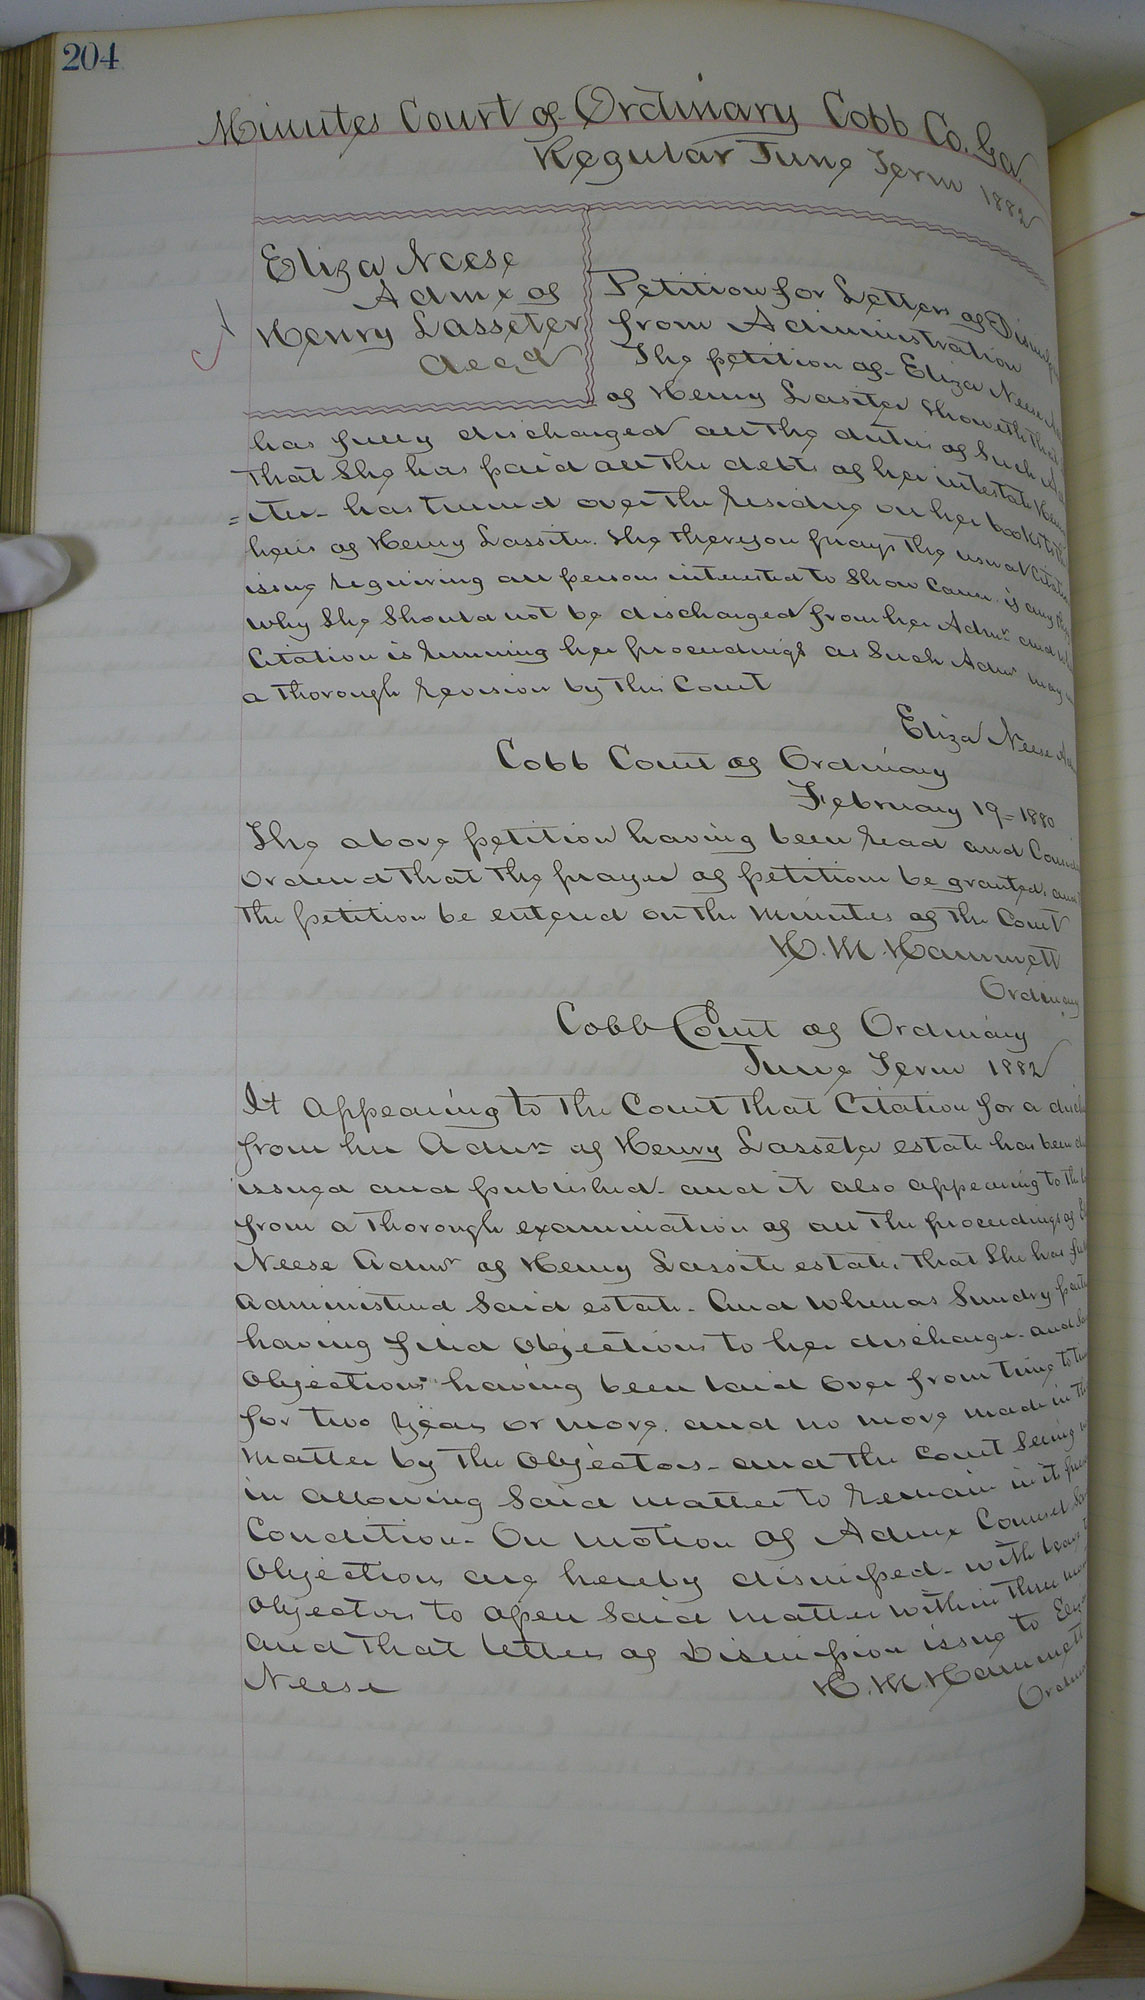 204
Minutes Court of Ordinary Cobb Co. Ga
Regular June Term 1882
Eliza Neese
Admx of
Henry Lasseter
decd
Petition for Letters of
from Administration
The petition of Eliza Neese
of Henry Lasiter Showeth that
has fully discharged all the duties of Such
That She has paid all the debts of her intestate
=iter- has turned over the residue on her books to
heirs of Henry Lassiter. She therefor prays the usual
issue requiring all persons interested to Show Cause if any they
Why She Should not be discharged from her Admr and
Citation is running her proceedings as Such Admr may
a thorough revision by this Court
Eliza Neese
Cobb Court of Ordinary
February 19=1880
The above petition having been read and
Ordered that the prayer of petition be granted and
the petition be entered on the Minutes of the Court
H. M. Hammett
Ordinary
Cobb Court of Ordinary
June Term 1882
It appearing to the Court that Citation for a
from her Admn of Henry Lasseter estate has been
issued and published- and it also appearing to the
from a thorough examination of all the proceedings of
Neese Admr of Henry Lassite estate, that She has
administered Said estate- And whereas Sundry
having filed Objections to her discharge- and
Objections having been laid over from time to
for two years or more. and no more made in
matter by the Objectors- and the Court Seeing
in allowing Said matter to remain in it
Condition- On motion of Admx Counsel
Objection are hereby dismissed- with leave
Objectors to open Said matter within three
and that letters of Dismission issue to
Neese
H. M. Hammett